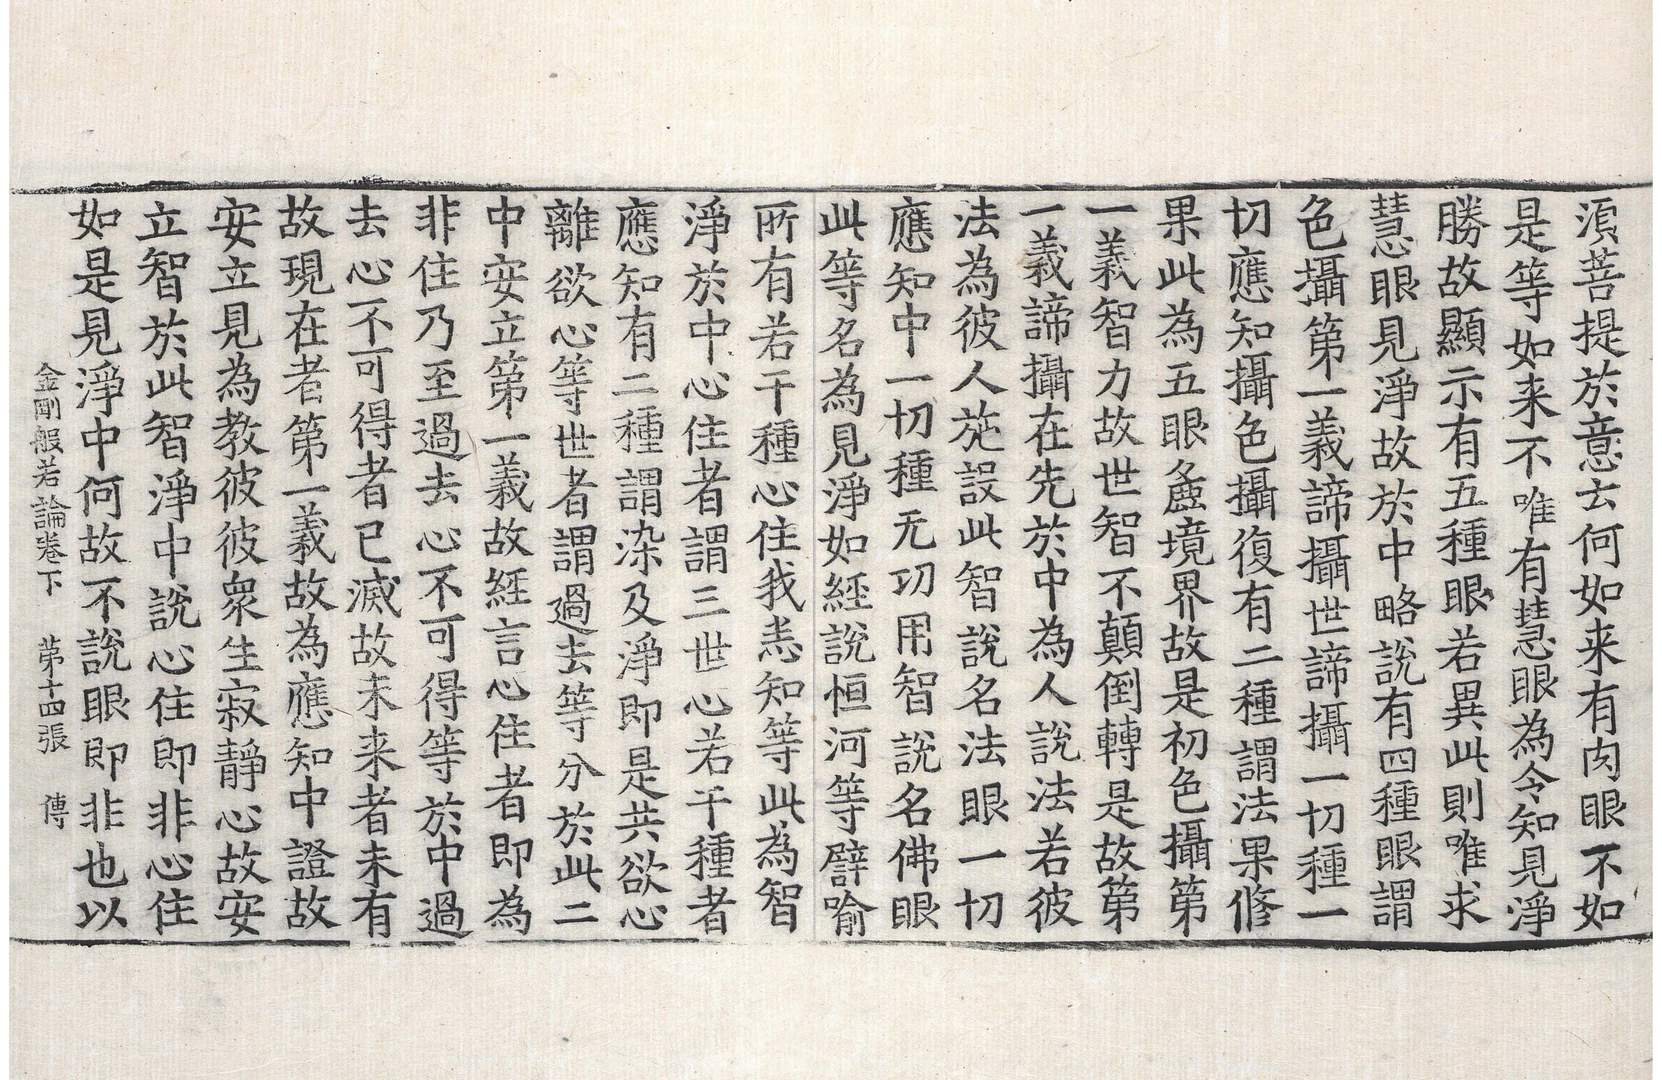 湏菩提於意云何如来有肉眼不如
是等如来不唯有慧眼為令知見淨
勝故顯示有五種眼若異此則唯求
慧眼見淨故於中略說有四種眼謂
色攝第一義諦攝世諦攝一切種一
切應知攝色攝復有二種謂法果修
果此為五眼麁境界故是初色攝第
一義智力故世智不顛倒轉是故第
一義諦攝在先於中為人說法若彼
法為彼人施設此智說名法眼一切
應知中一切種无功用智說名佛眼
此等名為見淨如經說恒河等譬喻
所有若干種心住我悉知等此為智
淨於中心住者謂三世心若干種者
應知有二種謂染及淨即是共欲心
離欲心等世者謂過去等分於此二
中安立第一義故經言心住者即為
非住乃至過去心不可得等於中過
去心不可得者已滅故未来者未有
故現在者第一義故為應知中證故
安立見為教彼彼衆生寂靜心故安
立智於此智淨中說心住即非心住
如是見淨中何故不說眼即非也以
金剛般若論卷下　第十四張　傳